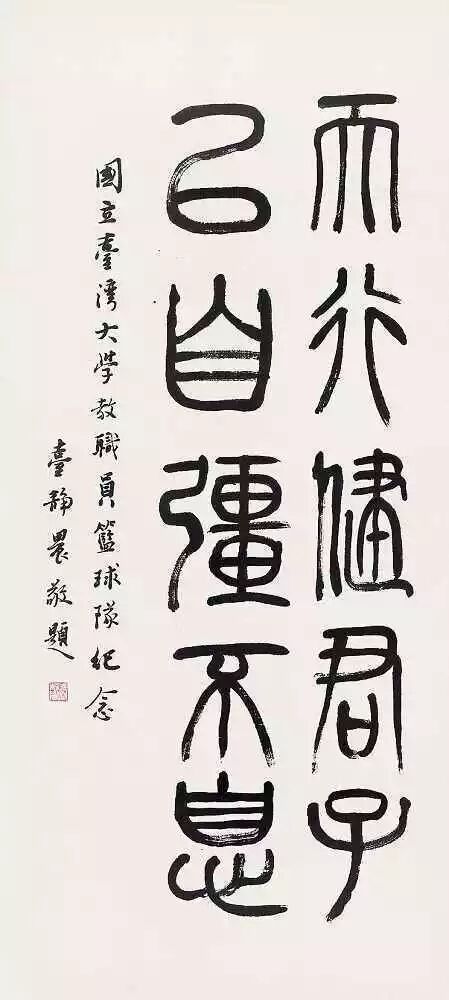 天行健君子
以自彊不息
國立臺灣大學教職員籃球隊紀念
臺靜農敬題